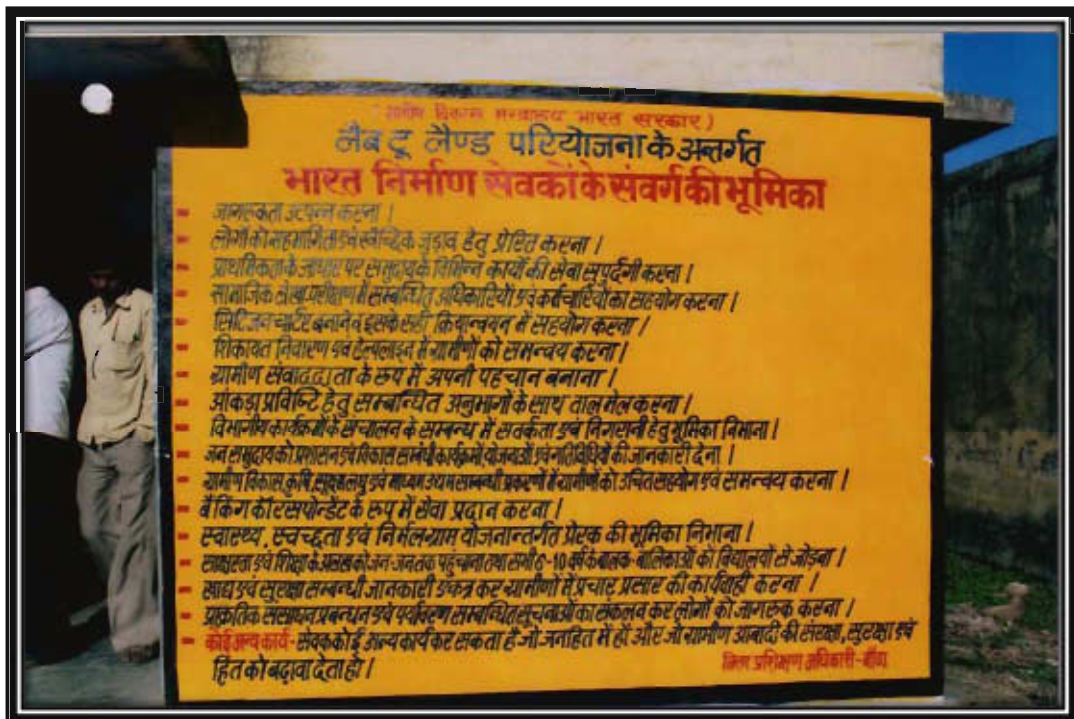 (ग्रामीण विकास मन्त्रालय भारत सरकार)
लैब टू लैण्ड परियोजना के अन्तर्गत
भारत निर्माण सेवकों के संवर्ग की भूमिका
जागरुकता उत्पन्न करना ।
लोगों को सहभागिता एवं स्वैच्छिक जुड़ाव हेतु प्रेरित करना ।
प्राथमिकता के आधार पर समुदाय के विभिन्न कार्यों की सेवा सुपुर्दगी करना ।
सामाजिक लेखा परीक्षण में सम्बन्धित अधिकारियों एवं कर्मचारियों का सहयोग करना ।
सिटिजन चार्टर बनाने व इसके सही क्रियान्वयन में सहयोग करना ।
शिकायत निवारण एवं हेल्पलाइन में ग्रामीणों को समन्वय करना ।
ग्रामीण संवाददाता के रुप में अपनी पहचान बनाना ।
आंकड़ा प्रविष्टि हेतु सम्बन्धित अनुभागों के साथ ताल मेल करना ।
विभागीय कार्यक्रमों के संचालन के सम्बन्ध में सतर्कता एवं निगरानी हेतु भूमिका निभाना ।
जन समुदाय को प्रशासन एवं विकास सम्बन्धी कार्यक्रमों, योजनाओं एवं गतिविधियों की जानकारी देना ।
ग्रामीण विकास, कृषि, सूक्ष्म लघु एवं माध्यम उद्यम सम्बन्धी प्रकरणों में ग्रामीणों को उचित सहयोग एवं समन्वय करना ।
बैंकिंग कॉरसपोन्डेंट के रुप में सेवा प्रदान करना ।
स्वास्थ्य, स्वच्छता एवं निर्मल ग्राम योजनान्तर्गत प्रेरक की भूमिका निभाना ।
साक्षरता एवं शिक्षा के को जन जन तक पहुंचाना तथा सभी 6-10 वर्ष के बालक-बालिकाओं को विद्यालयों से जोड़ना ।
खाद्य एवं सुरक्षा सम्बन्धी जानकारी एकत्र कर ग्रामीणों में प्रचार प्रसार की कार्यवाही करना ।
प्राकृतिक संसाधन प्रबन्धन एवं पर्यावरण सम्बन्धित सूचनाओं का संकलन कर लोगों को जागरुक करना ।
कोई अन्य कार्य- सेवक कोई अन्य कार्य कर सकता है जो जनहित में हो और जो ग्रामीण आबादी की संरक्षा, सुरक्षा एवं
हित को बढ़ावा देता हो ।
जिला प्रशिक्षण अधिकारी-बाँदा